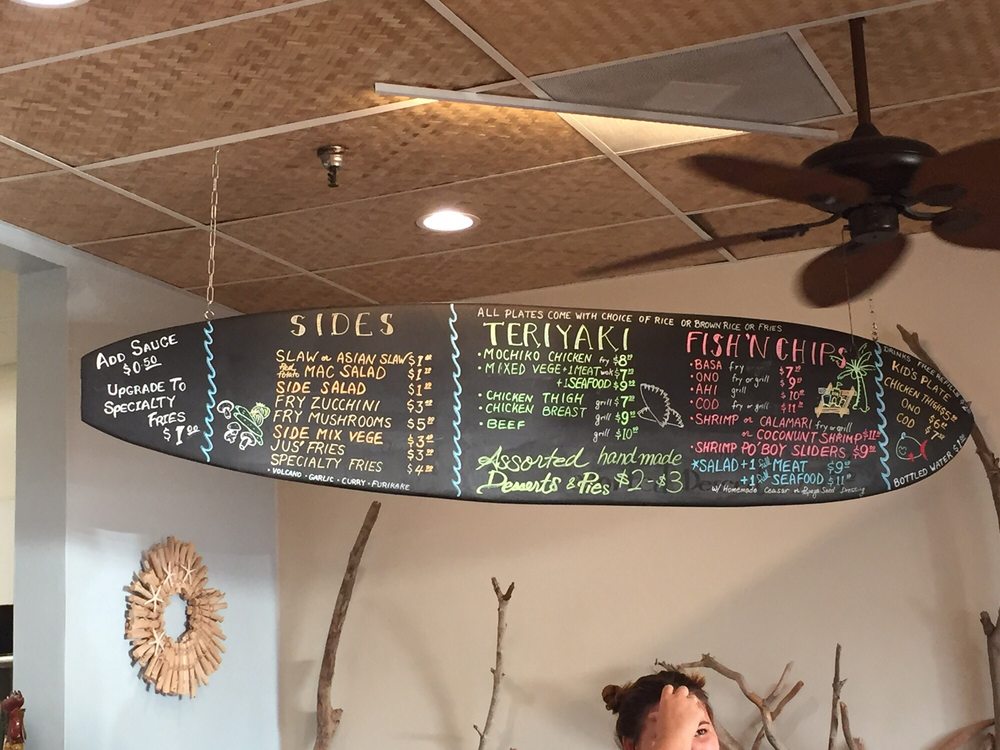 ADD SAUCE
$0.50
UPGRADE TO
SPECIALTY
FRIES
$1.00
SIDES
SLAW or ASIAN SLAW $1.00
MAC SALAD $1.00
SIDE SALAD $1.00
FRY ZUCCHINI $3.00
FRY MUSHROOMS $5.00
SIDE MIX VEGE $3.00
JUS' FRIES $3.00
SPECIALTY FRIES $4.00
• VOLCANO • GARLIC • CURRY • FURIKAKE
ALL PLATES COME WITH CHOICE OF RICE OR BROWN RICE OR FRIES
TERIYAKI
• MOCHIKO CHICKEN fry $8
• MIXED VEGE +1 MEAT wok $7
+1 SEAFOOD $9
• CHICKEN THIGH grill $7
• CHICKEN BREAST grill $9
• BEEF grill $10
Assorted handmade
Desserts & Pies $2-$3
FISH'N CHIPS
• BASA fry $7
• ONO fry or grill $9
• AHI grill $10
• COD fry or grill $11
• SHRIMP or CALAMARI fry or grill
or COCONUNT SHRIMP $11
• SHRIMP PO'BOY SLIDERS $9
*SALAD +1 full MEAT $9
+1 full SEAFOOD $11
w/ Homemade Ceasar or Papaya Seed Dressing
DRINKS FREE REFILLS
KID'S PLATE
CHICKEN THIGH $5
ONO $6
COD $7
BOTTLED WATER